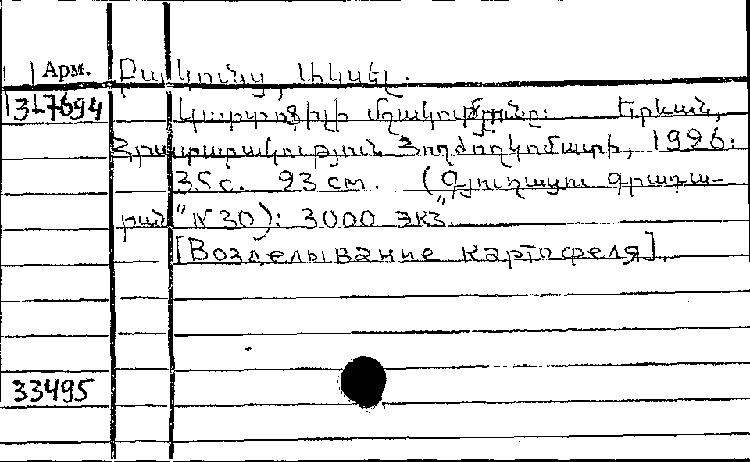 Арм. Բակունց, Ակսել.
3-7694 Կարտոֆիլի մշակությունը: Երևան,
Հրատարակություն Հողժողկոմատի, 1926:
35 с. 23 см. („Գյուղացու գրադա-
րան" № 30): 3000 экз.
[Возделывание картофеля].
33495